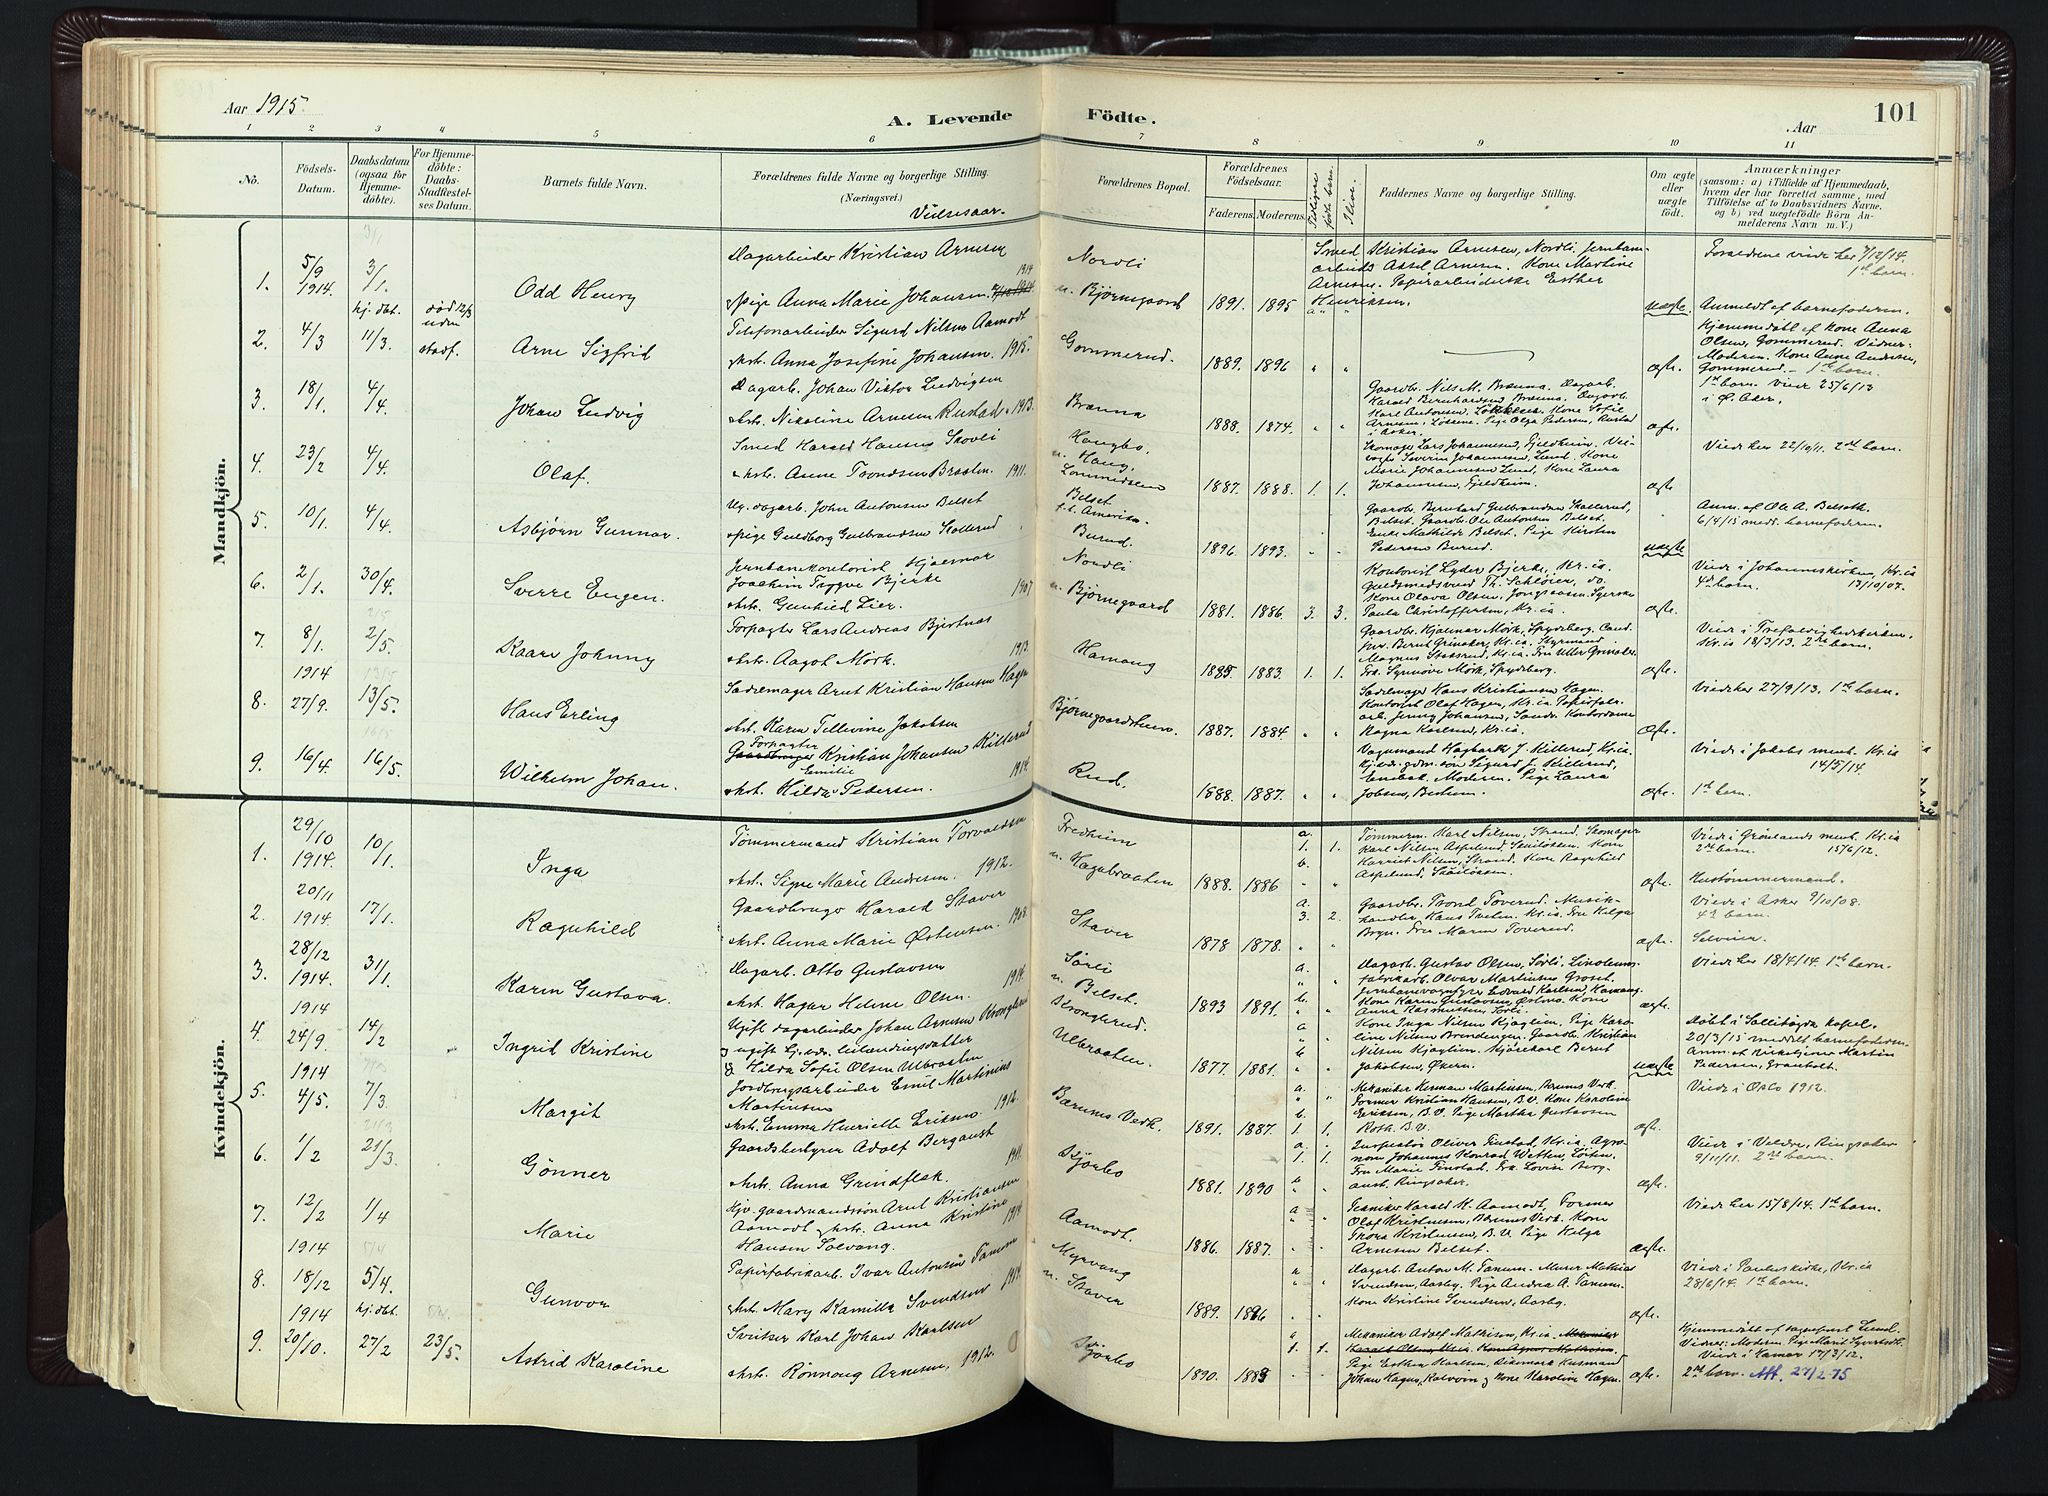 Aar 1915.
A. Levende
Födte.
101
Aar
1 2 3 4 5 6 7 8 9 10 11
No.
Födsels-
Datum.
Daabsdatum
(ogsaa for
Hjemme-
döbte).
For Hjemme-
döbte:
Daabs-
Stadfæstel-
ses Datum.
Barnets fulde Navn.
Forældrenes fulde Navne og borgerlige Stilling.
(Næringsvei.)
Vielsesaar.
Forældrenes Bopæl.
Forældrenes
Födselsaar.
Faderens. Moderens.
Tidligere
födte børn.
I live.
Faddernes Navne og borgerlige Stilling.
Om ægte
eller
uægte
födt.
Anmærkninger
(saasom: a) i Tilfælde af Hjemmedaab,
hvem der har forrettet samme, med
Tilföielse af to Daabsvidners Navne.
og b) ved uægtefödte Börn An-
melderens Navn m. V.)
Mandkjön.
1. 5/9 1914. 3/1. Odd Henry
Dagarbeider Kristian Arnesen
pige Anna Marie Johansen 1914
Nordli
n. Bjørnegaard 1891. 1895
Smed Kristian Arnesen, Nordli, Jernban-
arbeider Axsel Arnesen. Kone Martine
Arnesen. Papirarbeiderske Esther
Henriksen.
uægte.
Forældrene viede her 7/12/14.
1ste barn.
Anmeldt af barnefaderen.
2. 4/3 hj. dbt. 11/3. død 12/3
uden
stadf.
Arne Sigfrid
Telefonarbeider Sigurd Nilsen Aamodt
Hstr. Anna Josefine Johansen. 1915.
Gommerud. 1889. 1896 ægte.
Hjemmedøbt af Kone Anna
Olsen, Gommerud. Vidner:
Moderen. Kone Anne Andersen,
Gommerud. - 1ste barn.
3. 18/1. 4/4. Johan Ludvig
Dagarb. Johan Viktor Ludvigsen
Hstr. Nikoline Arnesen Rustad. 1913.
Brænna 1888. 1874.
Gaardbr. Nils M. Brænna. Dagarb.
Harald Bernhardsen Brænna. Dagarb.
Karl Antonsen, Løkkeser. Kone Sofie
Arnesen, Løkserne. Pige Olga Pedersen, Rustad
i Asker.
ægte.
1ste barn viede 25/6/13
i Ø. Aker.
4. 23/2 4/4. Olaf.
Smed Harald Hansen Skovli
Hstr. Anne Trondsen Braaten. 1911.
Haugbo,
n. Haug,
Lommedalen 1887. 1888. 1. 1.
Skomager Lars Johannesen, Fjeldheim. Vei-
vogter Severin Johannesen, Lund. Kone
Marie Johannesen Lund, Kone Laura
Johannesen, Fjeldheim.
ægte
Viede her 22/10/11. 2det barn.
5. 10/1. 4/4. Asbjørn Gunnar.
Ug. dagarb. John Antonsen Belset
pige Guldborg Gulbrandsen Skollerud
Belset
f. t. Amerika.
Burud. 1896. 1893.
Gaardb. Bernhard Gulbrandsen Skollerud,
Belset. Gaardb. Ole Antonsen Belset.
Enke Mathilde Belset. Pige Kirsten
Pedersen Burud.
uægte
Anm. af Ole A. Belseth.
6/4/15 medd. barnefaderen.
6. 2/1. 30/4. Sverre Eugen.
Jernbanekontorist Hjalmar
Joachim Trygve Bjerke 1907
Hstr. Gunhild Lier.
Nordli
n. Bjørnegaard 1881. 1886. 3. 3.
Kontorist Lyder Bjerke, Kr.ia.
Guldsmedsvend Th. Schløier, do.
Kone Olava Olsen, Jongsaasen. Syerske
Paula Christoffersen, Kr.ia.
ægte.
Viede i Johanneskirken, Kr.ia
4de barn. 13/10/07.
7. 8/1. 2/5. Kaare Johnny
Forpagter Lars Andreas Bjertnæs 1913
Hstr. Aagot Mørk.
Hamang 1885 1883. 1. 1.
Gaardbr. Hjalmar Mørk, Spydeberg. Cand.
jur. Bernt Grinaker, Kr.ia. Styrmand
Magnus Staxrud, Kr.ia. Fru Uller Grinaker.
Frk. Synnøve Mørk, Spydeberg.
ægte.
Viede i Trefoldighedskirken.
Kr.ia 18/3/13. 2det barn.
8. 1914 27/9. 13/5. Hans Erling
Sadelmager Arnt Kristian Hansen Hagen
Hstr. Karen Tellevine Jakobsen 3
Bjørnegaardsheim. 1887. 1884.
Sadelmager Hans Kristiansen Hagen.
Kontorist Olaf Hagen, Kr.ia. Papirfabr.
arb. Jenny Johansen, Sands. Kontordame
Ragna Karlsen, Kr.ia.
ægte.
Viede her 27/9/13. 1ste barn.
9. 16/4. 16/5. Wilhelm Johan.
Forpagter
Gaardbruger Kristian Johansen Killerud
Emilie
Hstr. Hilda Pedersen. 1914.
Rud. 1888. 1887.
Vognmand Hagbart J. Killerud, Kr.ia.
Hj.vær. gdm. søn Sigurd J. Killerud,
Enebak. Moderen. Pige Laura
Jobsen, Berhum.
ægte.
Viede i Jakobs menh. Kr.ia
14/5/14.
1ste barn.
Kvindekjön.
1. 29/10 1914. 10/1. Inga
Tømmermand Kristian Torvaldsen
Hstr. Signe Marie Andersen. 1912.
Fredheim
n. Hagabraaten 1888. 1886 1. 1.
Tømmerm. Karl Nilsen, Strand. Skomager
Karl Nilsen Aspelund, Skuiløkken. Kone
Harriet Nilsen, Strand. Kone Ragnhild
Aspelund, Skuiløkken.
ægte.
Viede i Grønlands menh. Kr.ia
2det barn. 15/6/12.
Hustømmermand.
2. 20/11 1914. 17/1. Ragnhild
Gaardbruger Harald Staver
Hstr. Anna Marie Østensen. 1908.
Staver 1878 1878. 3. 2.
Gaardbr. Trond Toverud. Musik-
handler Hans Tveten. Kr.ia. Fru Helga
Bryn. Fru Maren Toverud.
ægte.
Viede i Asker 9/10/08.
4de barn.
Selveier.
3. 28/12 1914. 31/1. Karen Gustava.
Dagarb. Otto Gustavsen 1914.
Hstr. Hagar Helene Olsen.
Sørli
n. Belset. 1893 1891.
Dagarb. Gustav Olsen, Sørli. Linoleums-
fabrikarb. Olvar Martinsen Groset.
Jernbanevognfører Edvard Karlsen, Hamang.
Kone Karen Gustavsen, Østmo. Kone
Anna Rasmussen, Sørli.
ægte.
Viede her 18/4/14. 1ste barn.
4. 1914 24/9. 14/2 Ingrid Kristine
Ugift dagarbeider Johan Arnesen Kronglerud
og ugift hj. vær. leilændingsdatter
Hilda Sofie Olsen Ulbraaten
Kronglerud.
Ulbraaten. 1877. 1881.
Kone Inga Nilsen Kjaglien, Pige Karo-
line Nilsen Brenden. Gaardb. Kristian
Nilsen Kjaglien. Kjørekarl Bernt
Jakobsen, Økern.
uægte
Døbt i Sollihøgda kapel.
20/3/15 meddelt barnefaderen.
Anm. af Kirketjener Martin
Pedersen, Granholt.
5. 1914 4/5. 7/3. Margit
Jordbrugsarbeider Emil Martinius
Martinsen
Hstr. Emma Henriette Eriksen. 1912.
Bærums Verk. 1891. 1887. 1. 1.
Mekaniker Herman Martinsen, Bærums Verk.
Former Kristian Hansen, B.V. Kone Karoline
Eriksen, B.V. Pige Martha Gustavsen
Roth. B.V.
ægte.
Viede i Oslo 1912.
6. 1/2 21/3. Gönner
Gaardsbestyrer Adolf Bergaust 1911.
Hstr. Anna Grindflak.
Kjørbo 1881. 1890 1. 1.
Inspektør Oliver Finstad, Kr.ia. Agro-
nom Johannes Konrad Wetten, Løiten.
Fru Marie Finstad. Fru Lovise Berg-
aust, Ringsaker.
ægte.
Viede i Veldre, Ringsaker
9/11/11. 2det barn.
7. 12/2 1/4 Marie
Hjv. gaardmandssøn Arnt Kristiansen
Aamodt, Hstr. Anna Kristine 1914.
Hansen Solvang.
Aamodt. 1886. 1887.
Tekniker Harald K. Aamodt, Former
Olaf Kristensen, Bærums Verk. Kone
Thora Kristensen, B.V. Pige Helga
Arnesen Belset.
ægte.
Viede her 15/8/14. 1ste barn.
8. 1914 18/12 5/4. Gunvor
Papirfabrikarb. Ivar Antonsen Tanum
Hstr. Mary Kamilla Svendsen 1914.
Myrvang
n. Staver 1889. 1896
Dagarb. Anton M. Tanum. Murer Mathias
Svendsen, Aasby. Pige Andrea A. Tanum.
Kone Kristine Svendsen, Aasby.
ægte.
Viede i Pauluskirke, Kr.ia
28/6/14. 1ste barn.
9. 1914 20/10. hj. dbt. 27/2 23/5. Astrid Karoline
Sveitser Karl Johan Karlsen
Hstr. Rønnaug Arnesen, 1912.
Kjørbo 1890. 1888 1. 1.
Mekaniker Adolf Mathisen, Kr.ia.
Pige Esther Karlsen, Danmark. Husmand
Johan Hagen, Kalvøen og Kone Karoline Hagen.
ægte.
Hjemmedøbt af sognepræst Lund.
Vidner: Moderen. Pige Marit Syvertsen.
Viede i Hamar 17/3/12.
2det barn. Att. 27/2 75